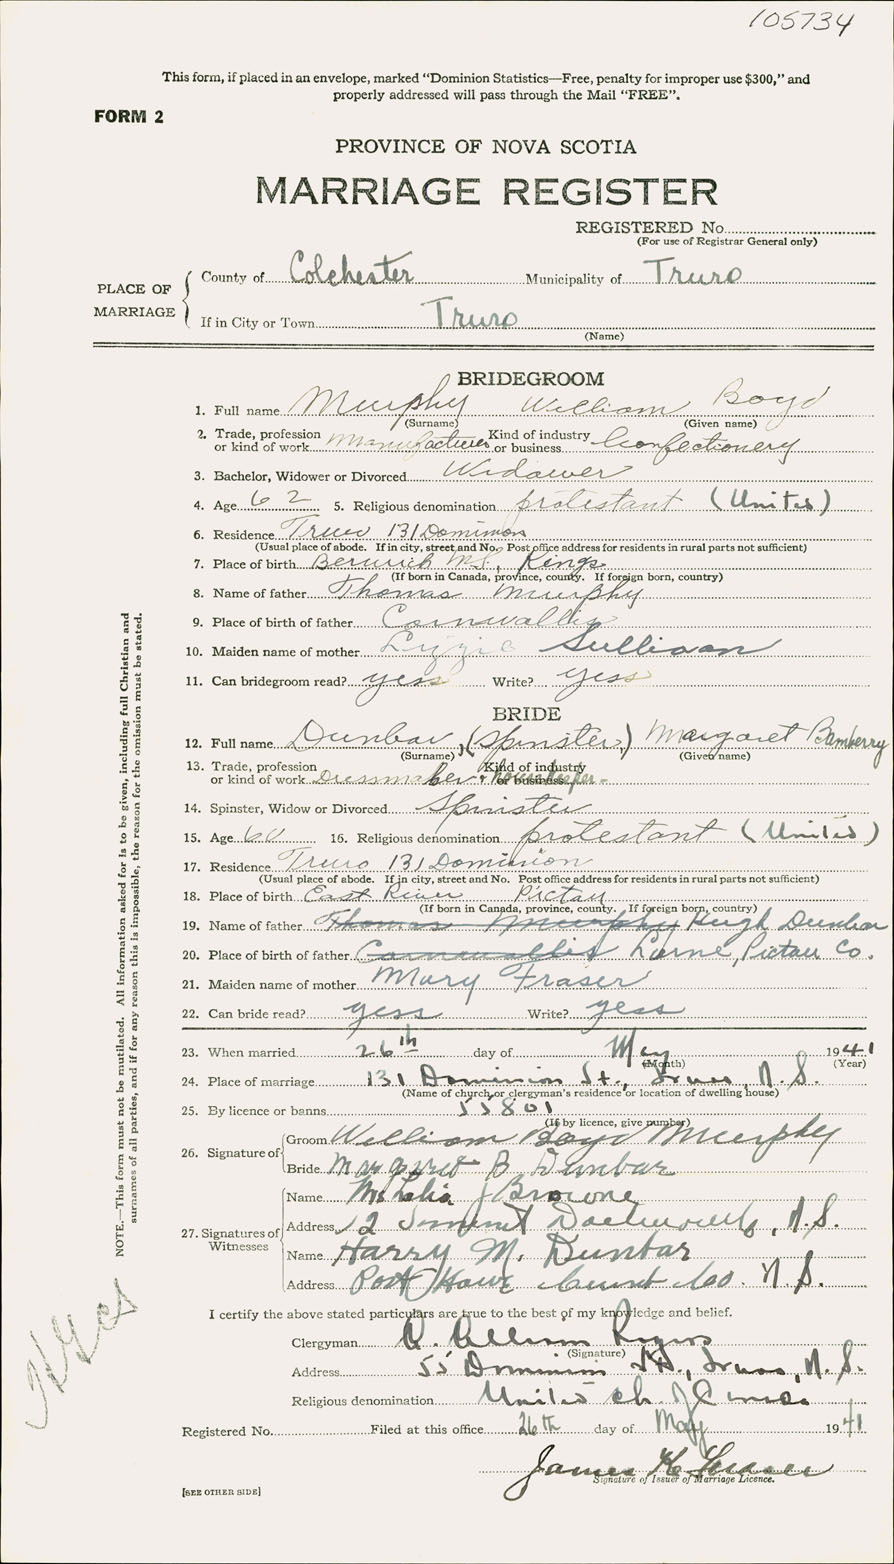 105734
This form, if placed in an envelope, marked “Dominion Statistics—Free, penalty for improper use $300,” and
properly addressed will pass through the Mail “FREE”.
FORM 2
PROVINCE OF NOVA SCOTIA
MARRIAGE REGISTER
REGISTERED No.
(For use of Registrar General only)
PLACE OF MARRIAGE
County of Colchester Municipality of Truro
If in City or Town Truro
(Name)
BRIDEGROOM
1. Full name Murphy William Boyd
(Surname) (Given name)
2. Trade, profession or kind of work Manufacturer Kind of industry or business Confectionery
3. Bachelor, Widower or Divorced Widower
4. Age 62 5. Religious denomination protestant (United)
6. Residence Truro 131 Dominion
(Usual place of abode. If in city, street and No. Post office address for residents in rural parts not sufficient)
7. Place of birth Berwick N.S., Kings
(If born in Canada, province, county. If foreign born, country)
8. Name of father Thomas Murphy
9. Place of birth of father Cornwallis
10. Maiden name of mother Lizzie Sullivan
11. Can bridegroom read? yess Write? yess
BRIDE
12. Full name Dunbar, (Spinster) Margaret Bamberry
(Surname) (Given name)
13. Trade, profession or kind of work Dressmaker & housekeeper Kind of industry or business
14. Spinster, Widow or Divorced Spinster
15. Age 60 16. Religious denomination protestant (United)
17. Residence Truro 131 Dominion
(Usual place of abode. If in city, street and No. Post office address for residents in rural parts not sufficient)
18. Place of birth East River Pictou
(If born in Canada, province, county. If foreign born, country)
19. Name of father Thomas Murphy Hugh Dunbar
20. Place of birth of father Cornwallis Lorne, Pictou Co.
21. Maiden name of mother Mary Fraser
22. Can bride read? yess Write? yess
23. When married 26th day of May 1941
(Month) (Year)
24. Place of marriage 131 Dominion St., Truro, N.S.
(Name of church or clergyman's residence or location of dwelling house)
25. By licence or banns 55801
(If by licence, give number)
26. Signature of
Groom William Boyd Murphy
Bride Margaret B Dunbar
27. Signatures of Witnesses
Name Mrs J Browne
Address 12 N.S.
Name Harry M. Dunbar
Address Port N.S.
I certify the above stated particulars are true to the best of my knowledge and belief.
Clergyman
(Signature)
Address 55 Dominion St., Truro, N.S.
Religious denomination United Ch. of Canada
Registered No. Filed at this office 26th day of May 1941
James K.
Signature of Issuer of Marriage Licence.
[SEE OTHER SIDE]
NOTE.—This form must not be mutilated. All information asked for is to be given, including full Christian and
surnames of all parties, and if for any reason this is impossible, the reason for the omission must be stated.